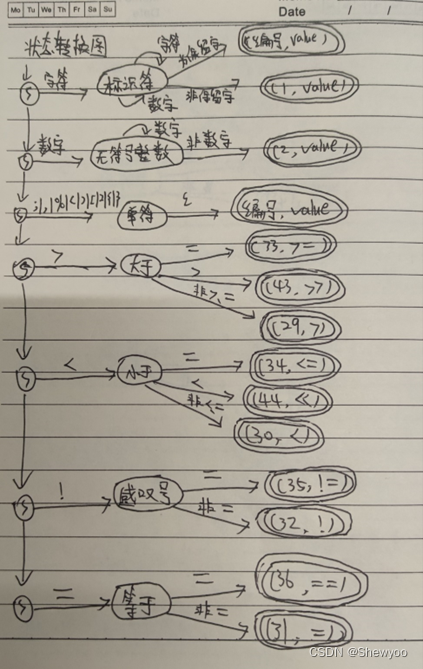 Mo Tu We Th Fr Sa Su
Date / /
状态转换图
字符
为保留字
(编号, value)
S 字符 标识符
数字
非保留字
(1, value)
数字
S 数字 无符号整数 非数字 (2, value)
S 单符 ε (编号, value)
S > 大于 = (33, >=)
> (43, >>)
非>,=
(29, >)
S < 小于 = (34, <=)
< (44, <<)
非<,=
(30, <)
S ! 感叹号 = (35, !=)
非= (32, !)
S = 等于 = (36, ==)
非= (31, =)
CSDN @Shewyoo